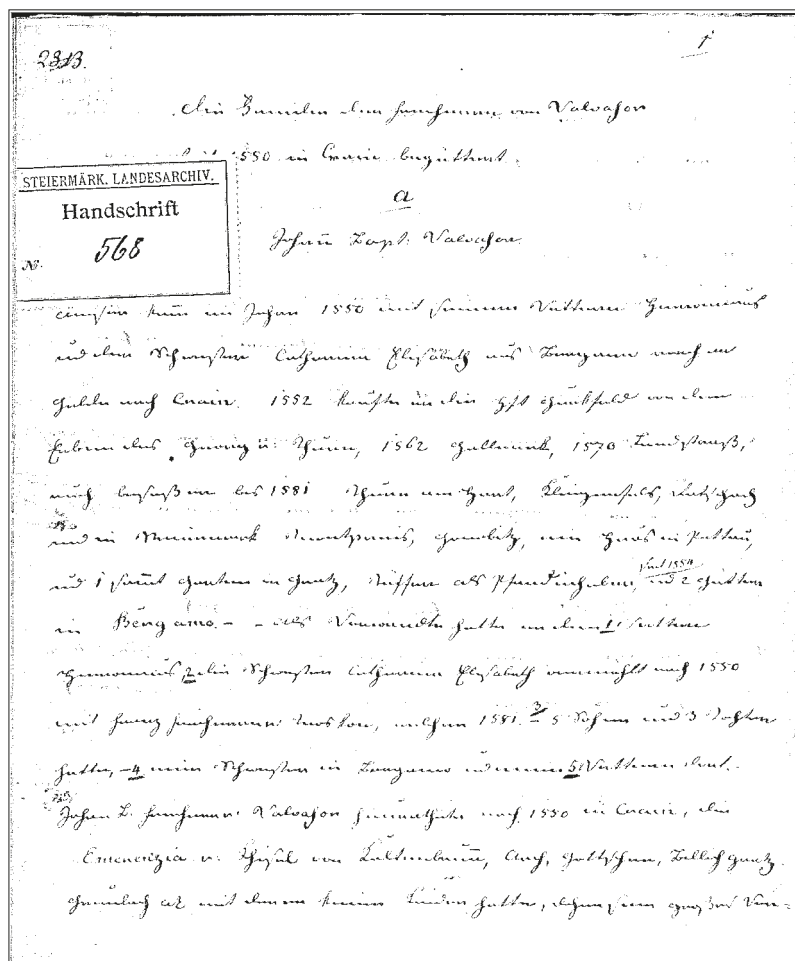 2313.
1
Die Familie der Freiherren von Valvasor
1550 in Crain begüttert.
STEIERMÄRK. LANDESARCHIV.
Handschrift
No. 568
a
Johan Bapt: Valvasor.
kam im Jahre 1550 mit seinem Vettern Hieronimus
und der Schwester Catharina Elisabeth aus Bergamo
nach Crain. 1552 kaufte er die Hft Gurkfeld von den
Erben des Georg v: Thurn, 1562 Gallenek, 1570 Landstraß,
auch besaß er bis 1581 Thurn am Hart, Klingenfels, Ratschach
und in Steiermark Montpreis, Gonobitz, ein Haus in Pettau,
und 1 samt Garten in Gratz, Tüffer als Pfandinhaber, seit 1554 und 2 Güter
in Bergamo. - - als Verwandte hatte er den 1. Vettern
Hieronimus, 2 die Schwester Catharina Elisabeth vermählt nach 1550
mit Freiherrn Moskon, welcher 1581. 3 5 Söhne und 3 Töchter
hatte, - 4 eine Schwester in Bergamo und einen 5 Vettern dort.
Johan B. Freiherr Valvasor heurathete nach 1550 in Crain, die
Emerenzia v: Khisel von Kaltenbrunn, Gottschee, Billichgratz
mit der er keine Kinder hatte, sein großes Ver-